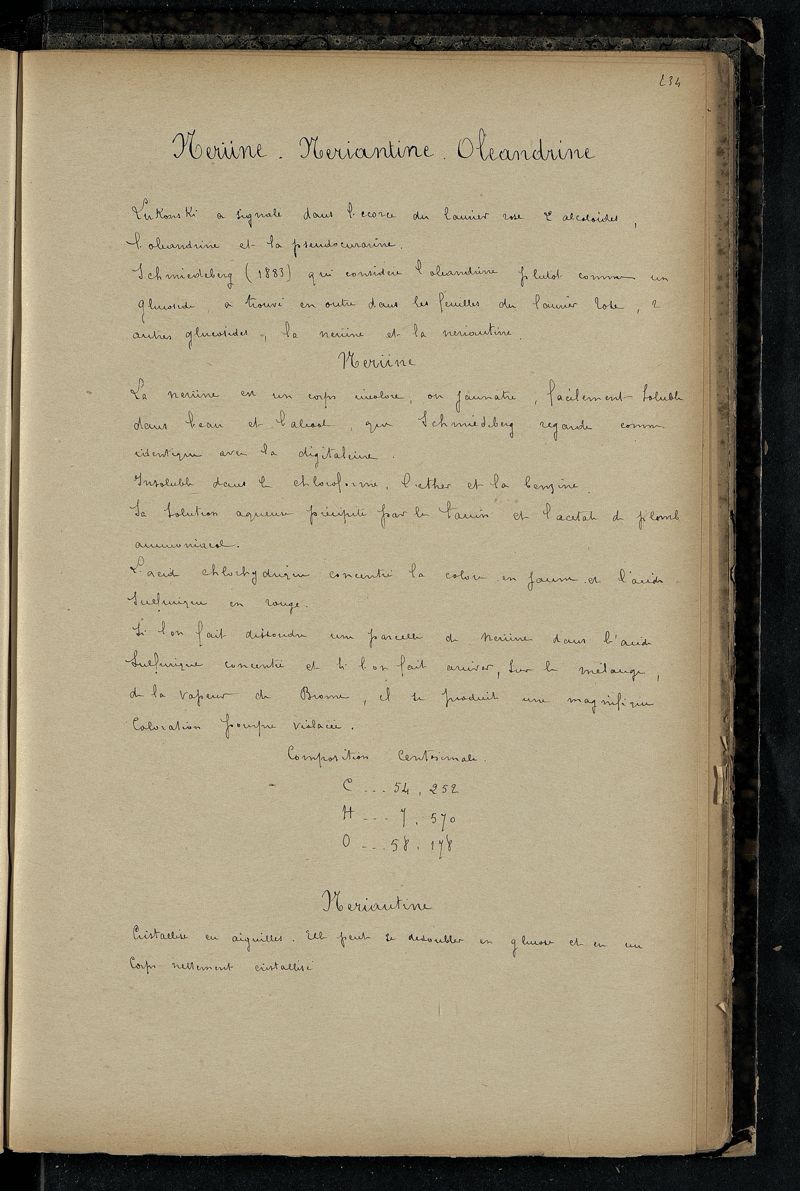 234
Neriine . Neriantine . Oleandrine
Lukonski a signalé dans l'ecorce du laurier rose 2 alcaloïdes,
l'oleandrine et la pseudocurarine.
Schmiedeberg (1883) qui considere l'oleandrine plutot comme un
glucoside, a trouvé en outre dans les feuilles du laurier rose, 2
autres glucosides, la neriine et la neriantine.
Neriine
La neriine est un corps incolore, ou jaunatre, facilement soluble
dans l'eau et l'alcool, que Schmiedeberg regarde comme
identique avec la digitaleine.
Insoluble dans le chloroforme, l'ether et la benzine.
Sa solution aqueuse précipite par le tanin et l'acetate de plomb
ammoniacal.
L'acide chlorhydrique concentré la colore en jaune et l'acide
sulfurique en rouge.
Si l'on fait dissoudre une parcelle de neriine dans l'acide
sulfurique concentré et si l'on fait arriver, sur le mélange,
de la vapeur de Brome, il se produit une magnifique
coloration pourpre violacée.
Composition centesimale.
C ... 54,252
H ... 7,570
O ... 58,178
Neriantine
Cristallise en aiguilles. Elle peut se dedoubler en glucose et en un
corps nettement cristallisé